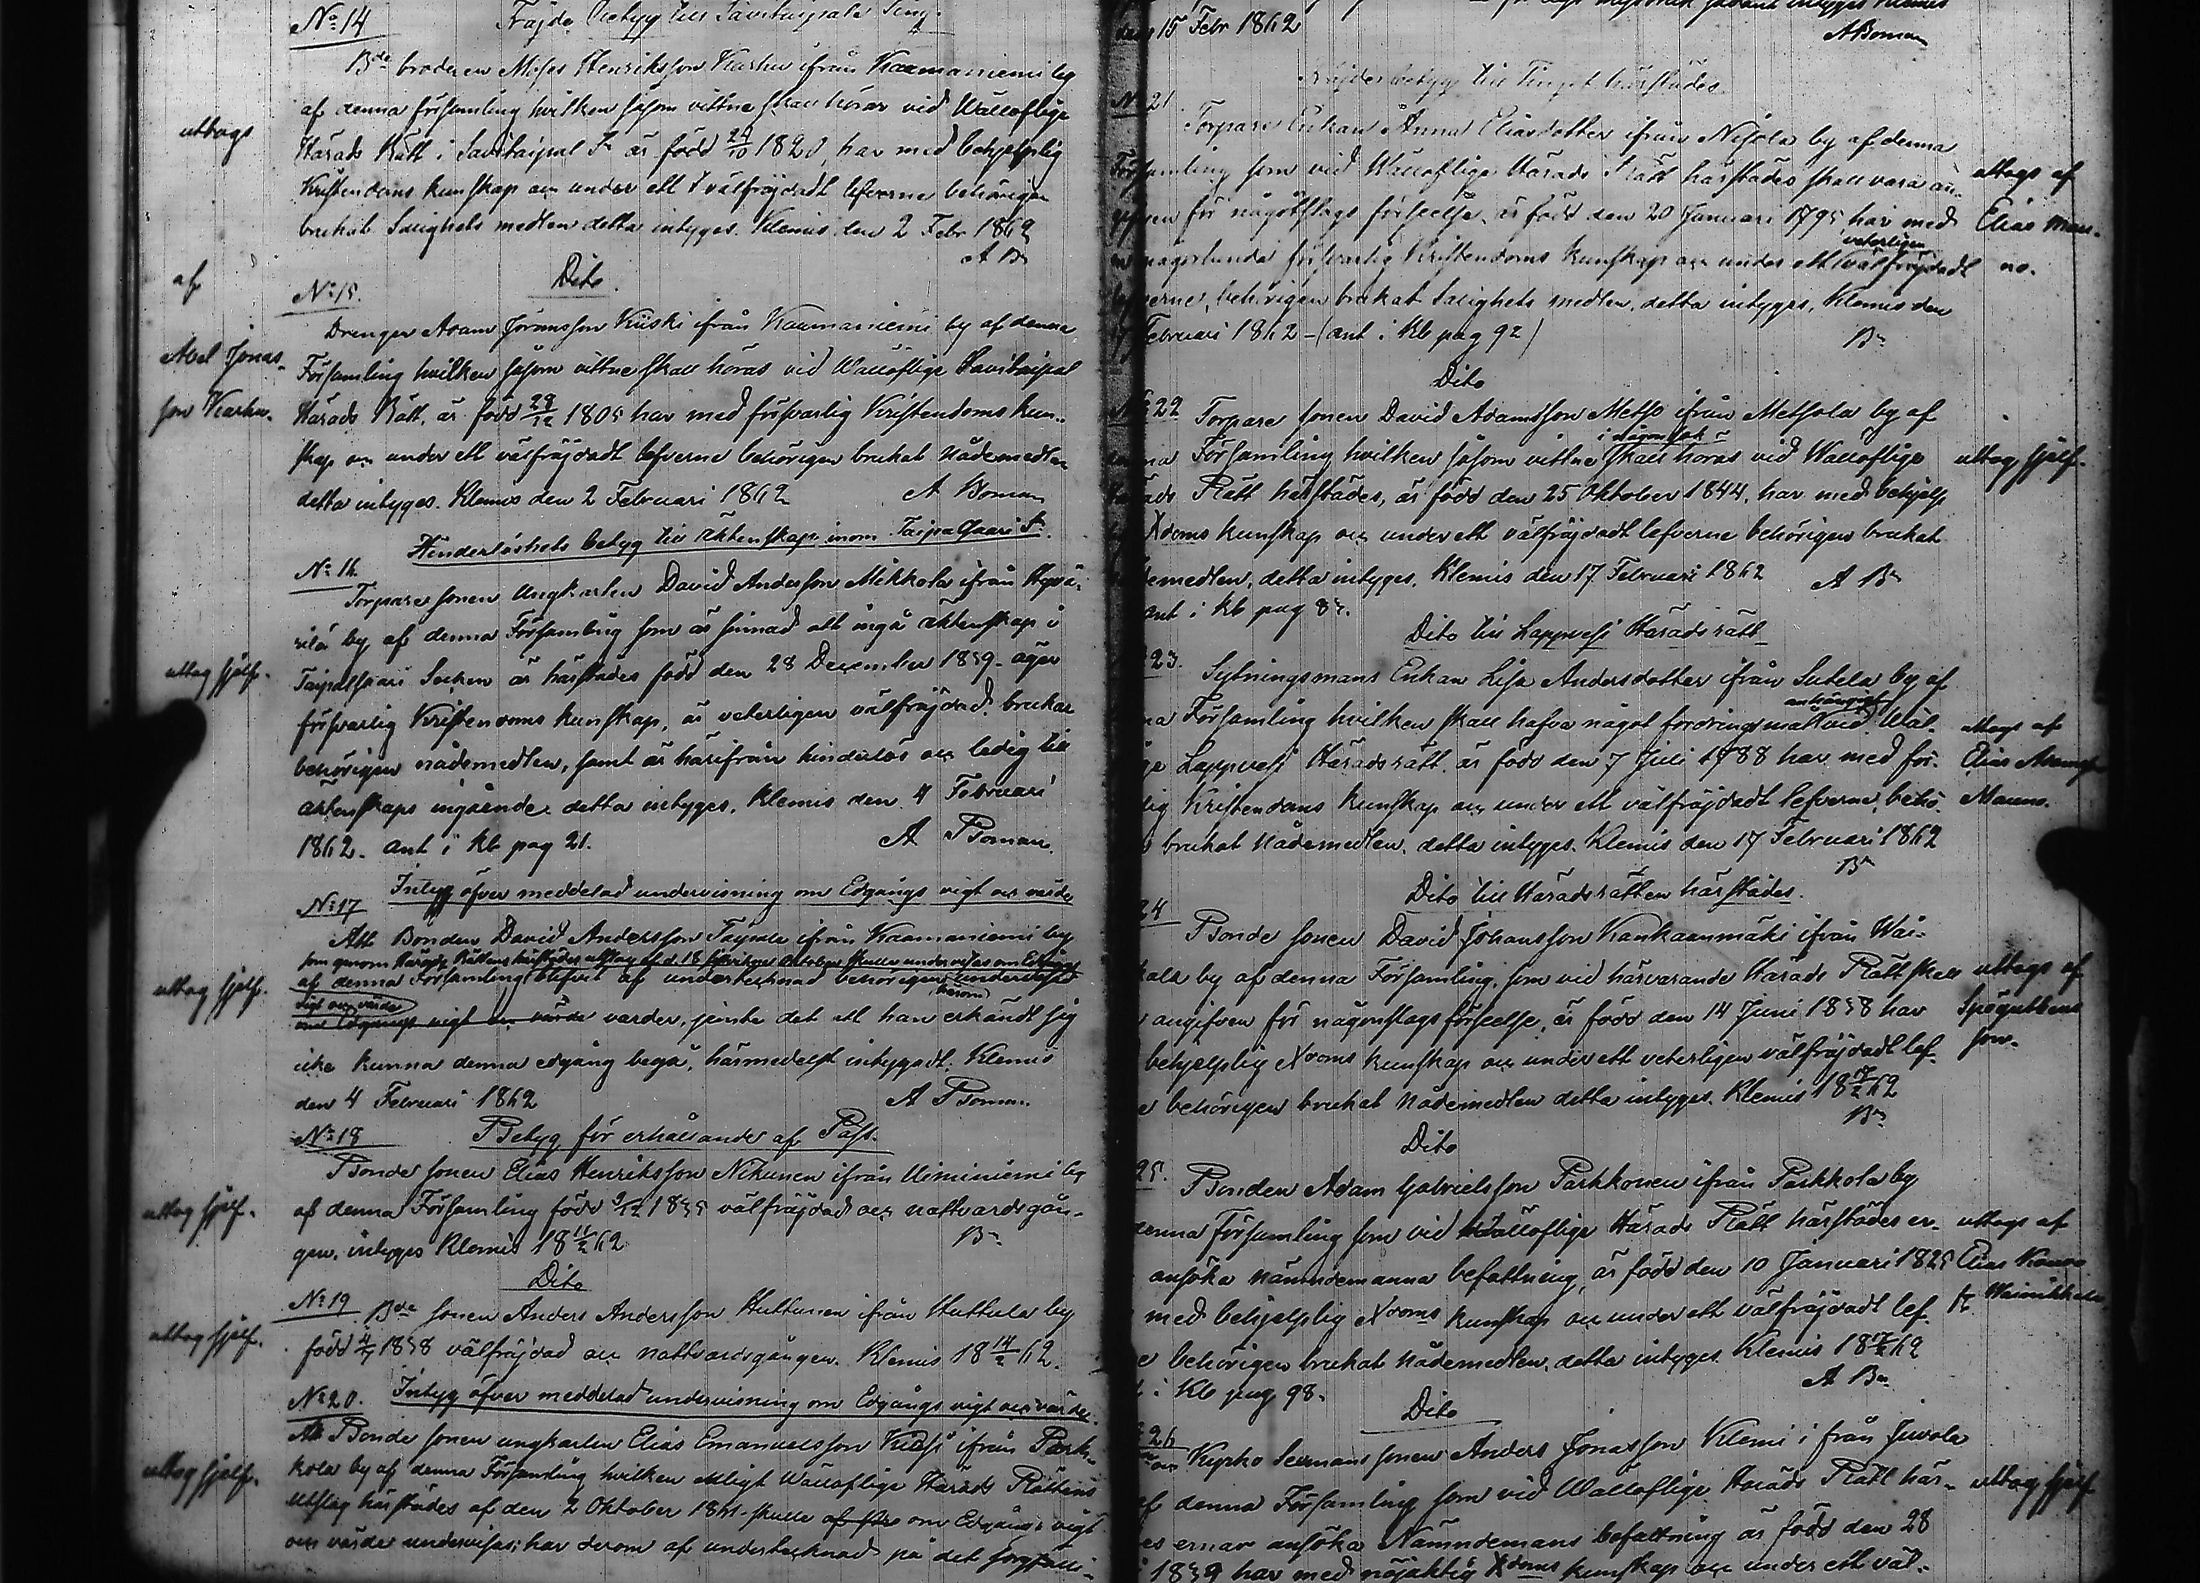 No 14 Fräjde Betyg till Savitaipale Ting.
Bde broderen Moses Henriksson Karhu ifrån Kaamaniemi by
af denna församling hvilken såsom vittne skall höras vid Wälloflige
Härads Rätt i Savitaipal Sn är född 24/10 1820, har med behjelplig
Kristendoms kunskap och under ett välfräjdadt lefverne behörigen
brukat Salighets medlen detta intygas. Klemis den 2 Febr. 1862
A Bn
uttogs
af
Abel Jonas-
son Karhu.
No 15. Dito.
Drengen Adam Göransson Kiiski ifrån Kaamaniemi by af denna
Församling hvilken såsom vittne skall höras vid Wälloflige Savitaipal
Härads Rätt, är född 28/12 1805 har med försvarlig Kristendoms kun-
skap och under ett välfräjdadt lefverne behörigen brukat nådemedlen
detta intyges. Klemis den 2 Februari 1862
A Boman
Hinderlöshets betyg till äktenskap inom Taipalsaari Sn.
No 16
Torpare sonen Ungkarlen David Andersson Mikkola ifrån
by af denna Församling som är sinnad att ingå äktenskap i
Taipalsaari Socken är härstädes född den 28 December 1839 - äger
försvarlig Kristendoms kunskap, är veterligen välfräjdad, brukar
behörigen nådemedlen, samt är härifrån hinderlös och ledig till
äktenskaps ingående detta intyges. Klemis den 4 Februari
1862. Ant i Kb pag 21.
A Boman.
uttog sjelf.
Intyg öfver meddelad undervisning om Edgångs vigt och värde
No 17
Att Bonden David Andersson ifrån Kaamaniemi by
som genom Härads Rättens härstädes utslag af d. 18 Oktober skulle undervisas om Edgångs
af denna Församling blifvit af undertecknad behörigen undervisad
vigt och värde
om Edgångs vigt och värde varder, jemte det att han erkändt sig
icke kunna denna edgång begå, härmedelst intygadt. Klemis
den 4 Februari 1862
A Boman.
uttog sjelf.
No 18 Betyg för erhållandet af Pass.
Bonde sonen Elias Henriksson Nikunen ifrån Uiminiemi by
af denna Församling född 9/12 1835 välfräjdad och nattvardsgån-
gen, intyges Klemis 18 11/2 62
Bn
uttog sjelf.
Dito
No 19 Bde sonen Anders Andersson Huttunen ifrån Huttula by
född 4/7 1838 välfräjdad och nattvardsgången. Klemis 18 14/2 62.
uttog sjelf.
No 20. Intyg öfver meddelad undervisning om Edgångs vigt och värde.
Att Bonde sonen ungkarlen Elias Emanuelsson ifrån Park-
kola by af denna Församling hvilken enligt Wälloflige Härads Rättens
utslag härstädes af den 2 Oktober 1861 skulle om Edgångs vigt
och värde undervisas; har derom af undertecknad på det sorgfälli-
uttog sjelf.
15 Febr 1862
A Boman
Fräjdebetyg till Tinget härstädes.
No 21
Torpare Enkan Anna Eliasdotter ifrån Nisola by af denna
Församling som vid Wälloflige Härads Rätt härstädes skall vara an-
gifven för någotslags förseelse, är född den 20 Januari 1795, har med
någorlunda försvarlig Kristendoms kunskap och under ett veterligen välfräjdadt
lefverne, behörigen brukat Salighets medlen, detta intyges, Klemis den
Februari 1862 - (ant i Kb pag 92)
Bn
uttogs af
Elias Man-
no.
Dito
No 22 Torpare sonen David Adamsson Metso ifrån Metsola by af
i någon sak
Församling hvilken såsom vittne skall höras vid Wälloflige
Rätt härstädes, är född den 25 Oktober 1844, har med behjelp
Xdoms kunskap och under ett välfräjdadt lefverne behörigen brukat
nådemedlen, detta intyges, Klemis den 17 Februari 1862
ant i Kb pag 83.
A Bn
uttog sjelf.
Dito till Lappvesi Häradsrätt
23. Sytningsmans Enkan Lisa Andersdotter ifrån Sutela by af
anhängigt
Församling hvilken skall hafva något fordringsmål vid Wäl-
Lappvesi Häradsrätt, är född den 7 Juli 1788 har med för-
lig Kristendoms kunskap och under ett välfräjdadt lefverne, behö-
brukat nådemedlen, detta intyges. Klemis den 17 Februari 1862
Bn
uttogs af
Elias Adamsson
Manno.
Dito till Häradsrätten härstädes.
24
Bonde sonen David Johansson Kankaanmäki ifrån Wai-
kala by af denna Församling, som vid härvarande Härads Rätt skall
angifven för någonslags förseelse, är född den 14 Juni 1838 har
behjelplig Xdoms kunskap och under ett veterligen välfräjdadt lef-
behörigen brukat nådemedlen detta intyges. Klemis 18 17/2 62
Bn
uttogs af
son.
Dito
25. Bonden Adam Gabrielsson Parkkonen ifrån Parkkola by
denna Församling som vid Wälloflige Härads Rätt härstädes er-
ansöka nämndemanna befattning, är född den 10 Januari 1825
med behjelplig Xdoms kunskap och under ett välfräjdadt lef-
behörigen brukat nådemedlen, detta intyges Klemis 18 17/2 62
i Kb pag 98.
A Bn.
uttogs af
Elias
fr.
Dito
26 Kyrko Sexmans sonen Anders Jonasson Klemi i från Juvola
af denna Församling som vid Wälloflige Härads Rätt här-
ernar ansöka Nämndemans befattning är född den 28
1839 har med nöjaktig Xdoms kunskap och under ett väl-
uttog sjelf